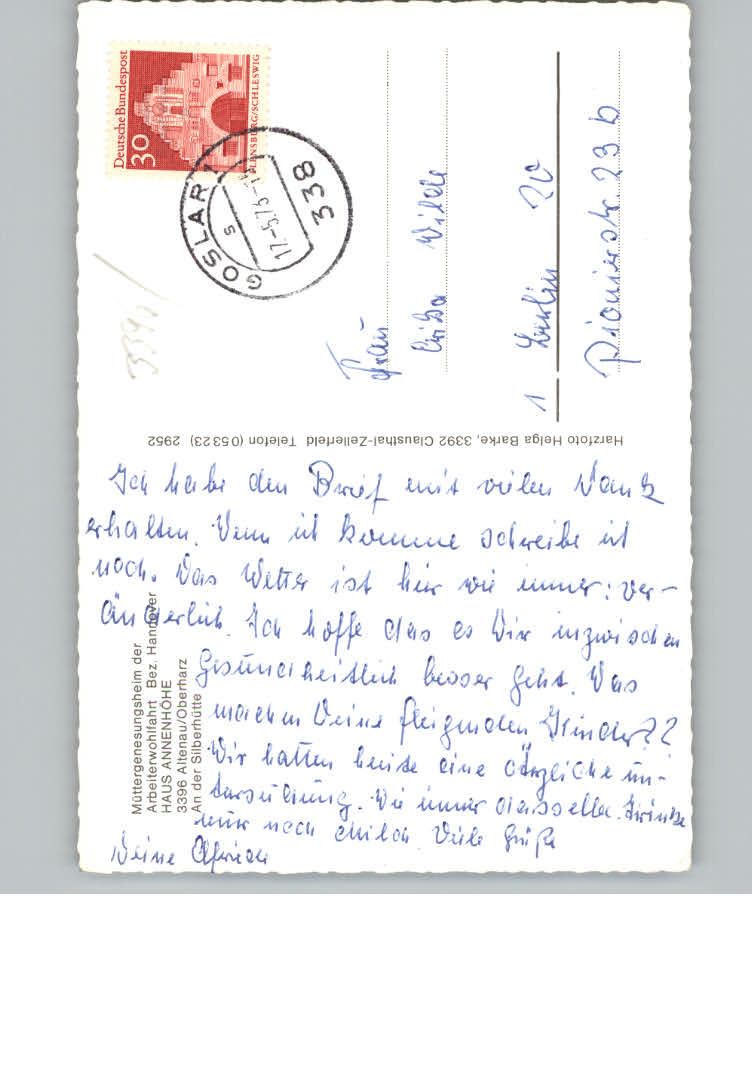 Deutsche Bundespost
30
FLENSBURG/SCHLESWIG
GOSLAR 1
s
338
3392
Frau
Erika Wilde
1 Berlin 20
Pionierstr 23 b
Harzfoto Helga Barke, 3392 Clausthal-Zellerfeld Telefon (05323) 2952
Müttergenesungsheim der
Arbeiterwohlfahrt Bez. Hannover
HAUS ANNENHÖHE
3396 Altenau/Oberharz
An der Silberhütte
Ich habe den Brief mit vielen Dank
erhalten. Wenn ich komme schreibe ich
noch. Das Wetter ist hier wie immer: ver-
änderlich. Ich hoffe das es Dir inzwischen
Gesundheitlich besser geht. Was
machen Deine Kinder??
Wir hatten heute eine ärztliche un-
tersuchung. Wie immer dasselbe. Trinke
nur noch Milch. Viele Grüße
Deine